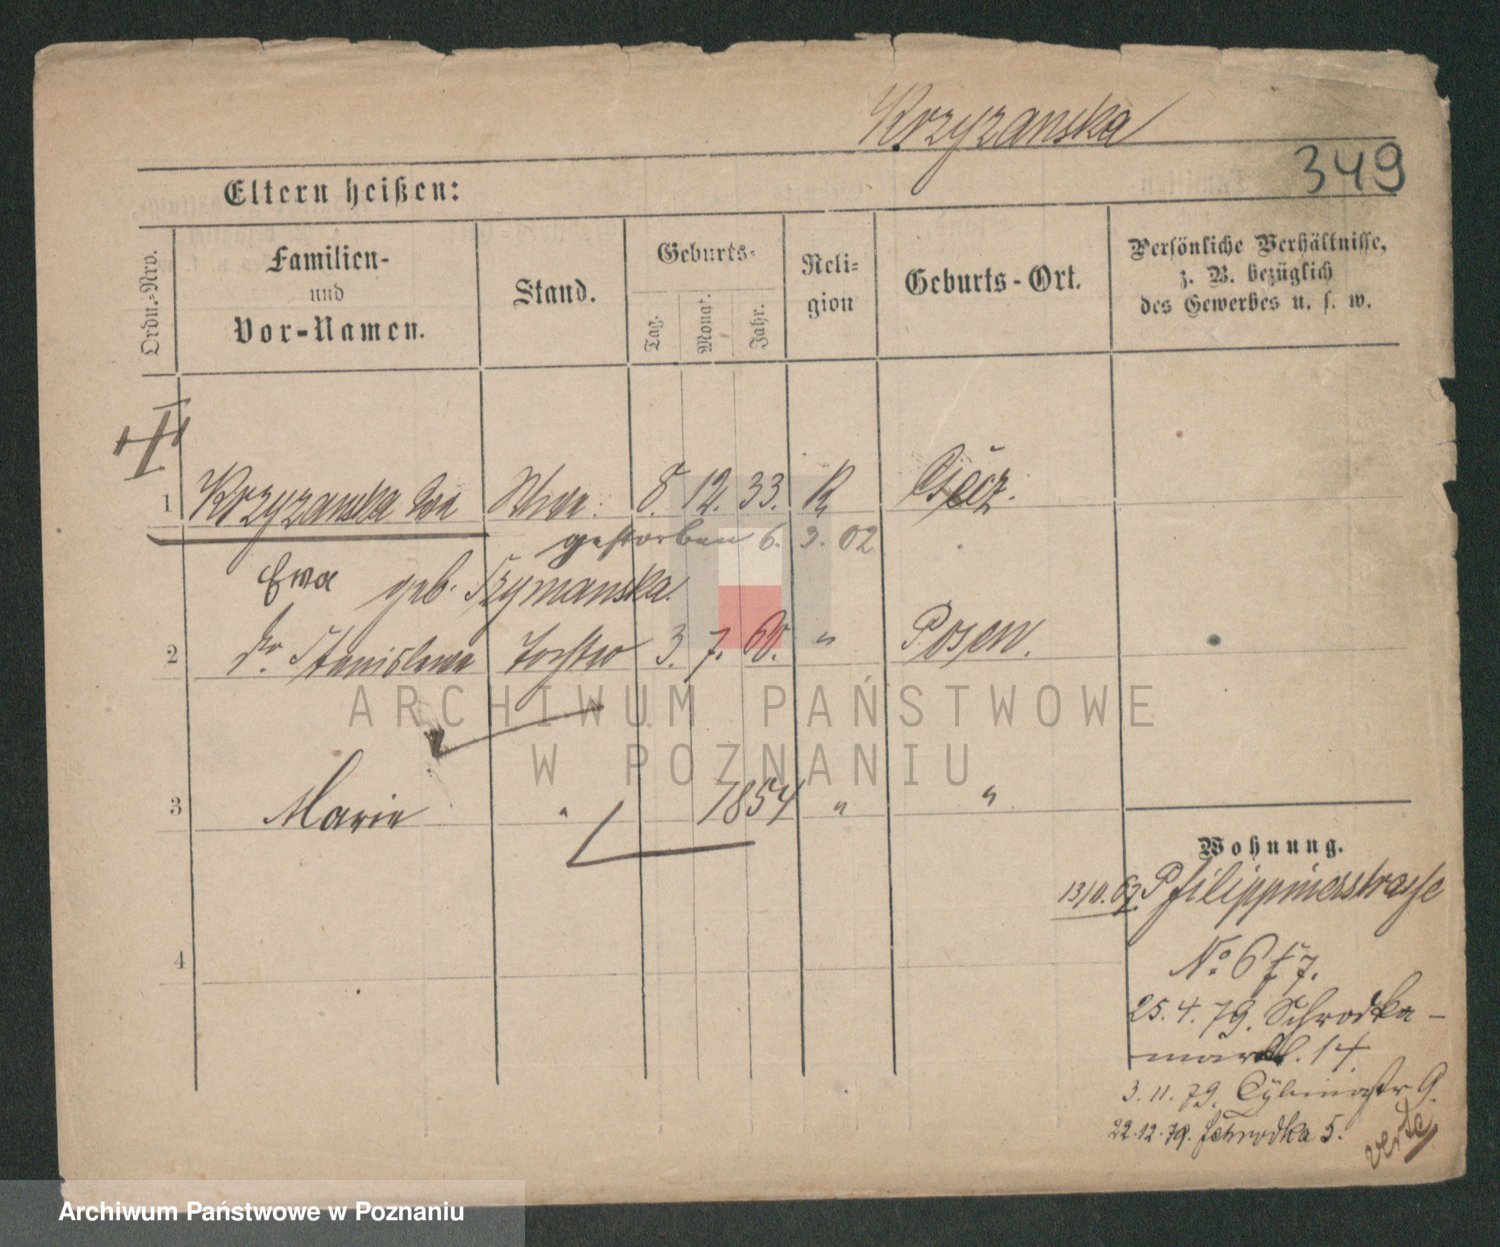 Krzyzanska
349
Eltern heißen:
Ordn.-Nro.
Familien-
und
Vor-Namen.
Stand.
Geburts-
Tag.
Monat.
Jahr.
Reli-
gion
Geburts-Ort.
Persönliche Verhältnisse,
z. B. bezüglich
des Gewerbes u. s. w.
1 Krzyzanska Wwe 8. 12. 33. R
gestorben 6. 3. 02
Ewa geb. Szymanska.
2 Stanislawa Tochter 3. 7. 60. " Posen.
3 Marie " 1854 " "
4
Wohnung.
13/11. 67 Philippinerstrasse
No. 6 7.
25. 4. 79. Schrodka-
markt. 14
3. 11. 79. Cybinastr 9.
22.12.79. Schrodka 5.
verte
ARCHIWUM PAŃSTWOWE
W POZNANIU
Archiwum Państwowe w Poznaniu